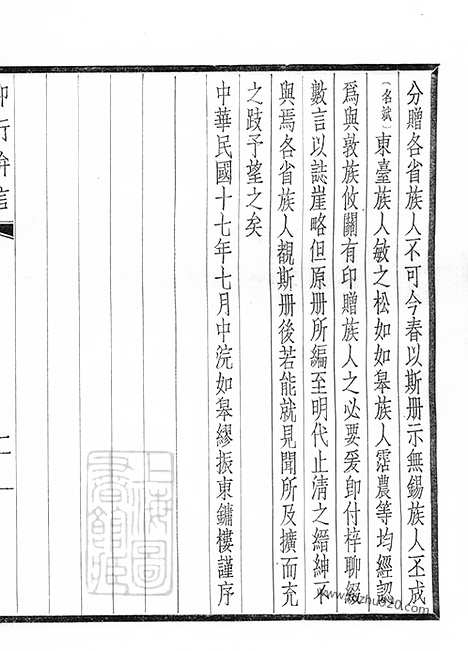 分贈各省族人不可今春以斯册示無錫族人丕成
（名斌）東臺族人敏之松如如皋族人霑農等均經認
爲與敦族攸關有印贈族人之必要爰卽付梓聊綴
數言以誌崖略但原册所編至明代止淸之縉紳不
與焉各省族人觀斯册後若能就見聞所及擴而充
之跂予望之矣
中華民國十七年七月中浣如皋繆振東鏞樓謹序
印行弁言
二
上海圖書館藏